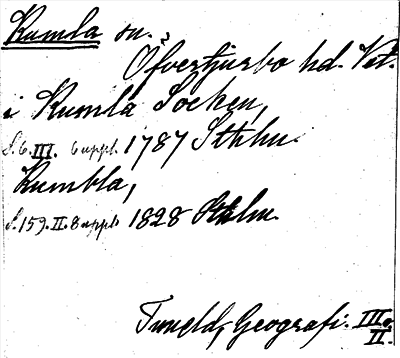 Kumla sn.
Öfvertjurbo hd. Vstl.
i Kumla Socken,
S. 6. III. 6 uppl. 1787 Sthlm.
Kumbla,
S. 159. II. 8 uppl. 1828 Sthlm.
Tuneld, Geografi. III.
II.